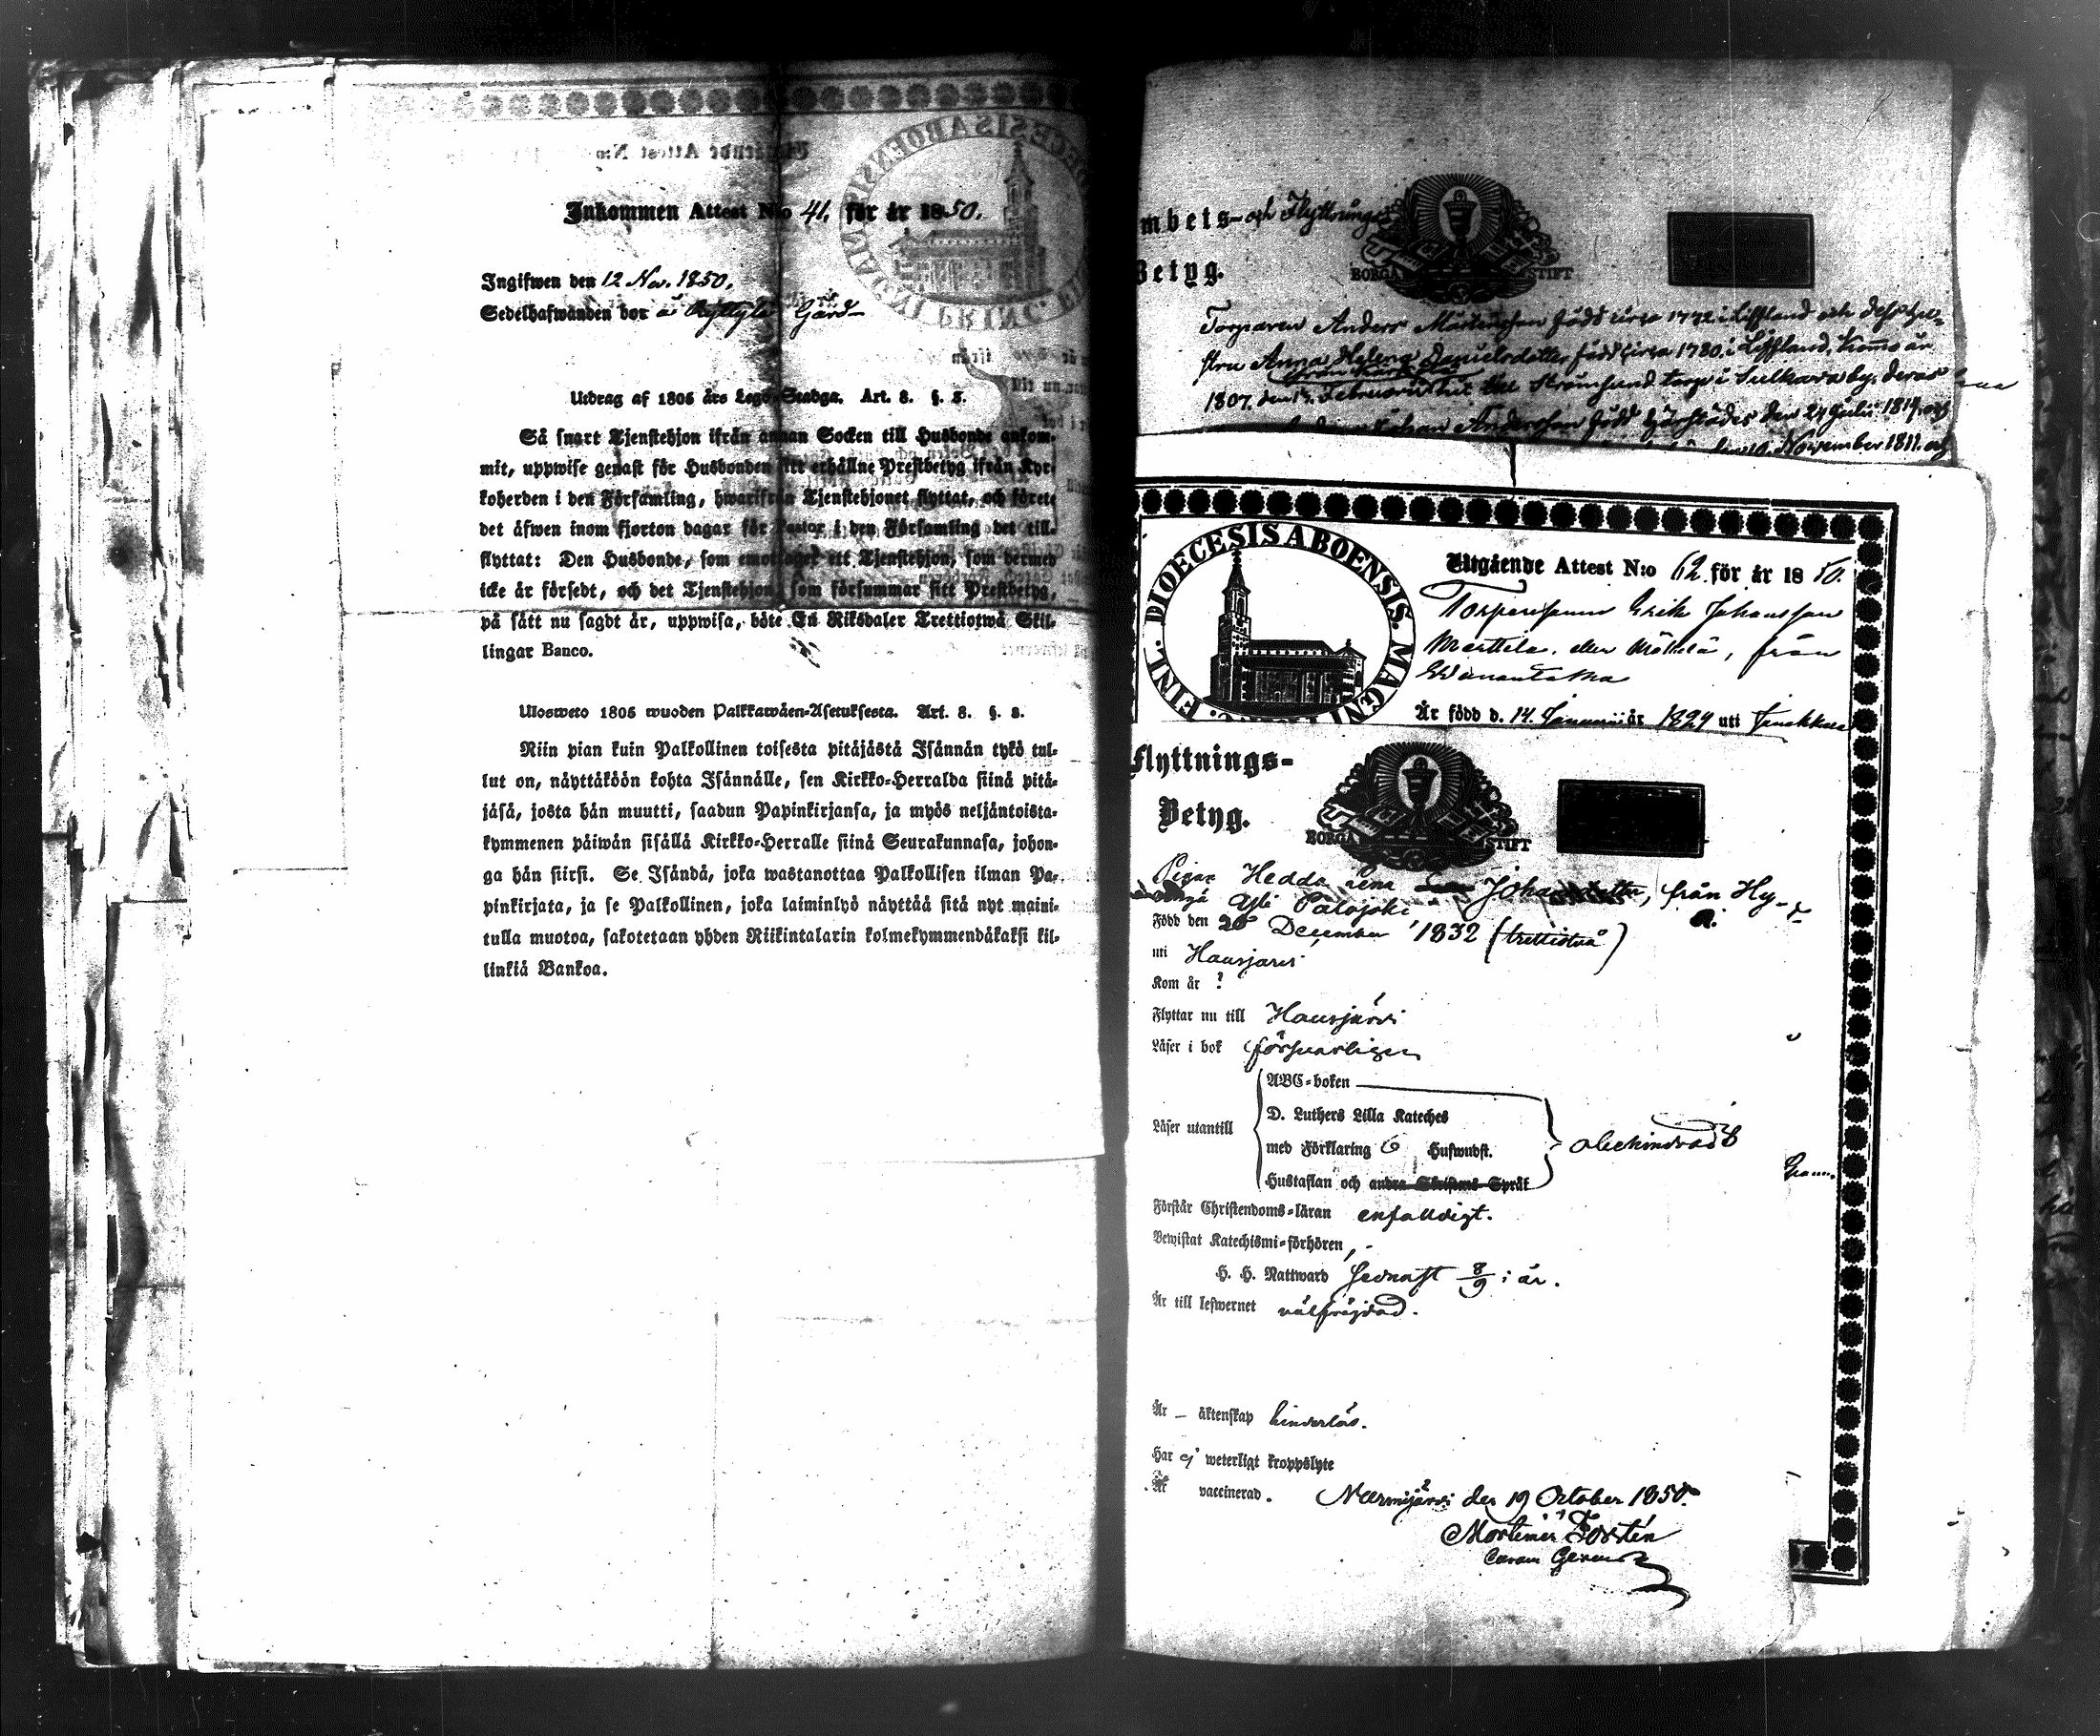 Inkommen Attest N:o 41. för år 1850.
Ingifwen den 12 Nov. 1850.
Sedelhafwanden bor å Ryttylä Gård
Utdrag af 1805 års Lego-Stadga. Art. 8. §. 8.
Så snart Tjenstehjon ifrån annan Socken till Husbonde ankom-
mit, uppwise genast för Husbonden sitt erhållne Prestbetyg ifrån Kyr-
koherden i den Församling, hwarifrån Tjenstehjonet flyttat, och förete
det äfwen inom fjorton dagar för Pastor i den Församling det till-
flyttat: Den Husbonde, som emottager ett Tjenstehjon, som dermed
icke är försedt, och det Tjenstehjon, som försummar sitt Prestbetyg,
på sätt nu sagdt är, uppwisa, böte En Riksdaler Trettiotwå Skil-
lingar Banco.
Ulosweto 1805 wuoden Palkkawäen-Asetuksesta. Art. 8. §. 8.
Niin pian kuin Palkollinen toisesta pitäjästä Isännän tykö tul-
lut on, näyttäköön kohta Isännälle, sen Kirkko-Herralda siinä pitä-
jäsä, josta hän muutti, saadun Papinkirjansa, ja myös neljäntoista-
kymmenen päiwän sisällä Kirkko-Herralle siinä Seurakunnasa, johon-
ga hän siirsi. Se Isändä, joka wastanottaa Palkollisen ilman Pa-
pinkirjata, ja se Palkollinen, joka laiminlyö näyttää sitä nyt maini-
tulla muotoa, sakotetaan yhden Riikintalarin kolmekymmendäkaksi kil-
linkiä Bankoa.
mbets- och Flyttnings
Betyg.
BORGÅ STIFT
Torparen Anders Mårtensson född circa 1772 i Liffland och dess hu-
stru Anna Helena Danielsdotter född circa 1780 i Liffland, Komo år
1807. den 15. Februarii till Strömsund torp i Sulkava by, deras
Johan Andersson född härstädes den 24 Julii 1814, och
den 10. November 1817. och
DIOECESIS ABOENSIS. MAGNI FINL.
Utgående Attest N:o 62 för år 1850.
Torparesonen Erik Johansson
Marttila, från
Wånantaka
Är född d. 14. Januarii år 1829 uti Janakkala
Flyttnings-
Betyg.
BORGÅ STIFT
Pigan Hedda Lena Johansdotter, från Hy-
Palojoki
Född den 20 December 1832 (trettiotvå)
uti Hausjärvi
Kom år ?
Flyttar nu till Hausjärvi
Läser i bok försvarligen
ABC-boken
D. Luthers Lilla Kateches
Läser utantill
med Förklaring 6 Hufwudst.
Hustaflan och andra Skriftens Språk
obehindradt
Förstår Christendoms-läran enfaldigt.
Bewistat Katechismi-förhören,
H. H. Nattward sednast 8/9 i år.
Är till lefwernet välfrejdad.
Är – äktenskap hinderlös.
Har ej weterligt kroppslyte
Är vaccinerad. Nurmijärvi den 19 October 1850.
Mortimer Forstén